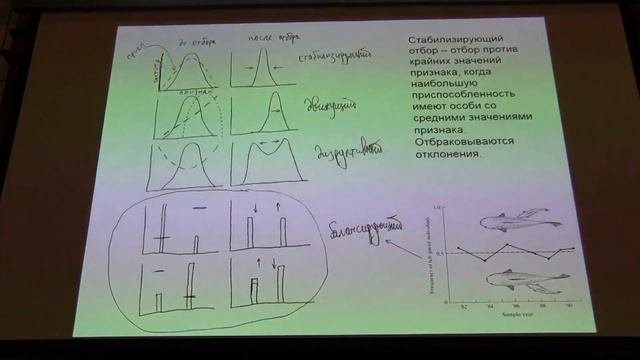 до отбора
после отбора
присп.
частота
признак
стабилизирующий
движущий
дизруптивный
балансирующий
Стабилизирующий
отбор – отбор против
крайних значений
признака, когда
наибольшую
приспособленность
имеют особи со
средними значениями
признака.
Отбраковываются
отклонения.
Frequency of left-jawed individuals
1.0
0.5
'82 '84 '86 '88 '90
Sample year